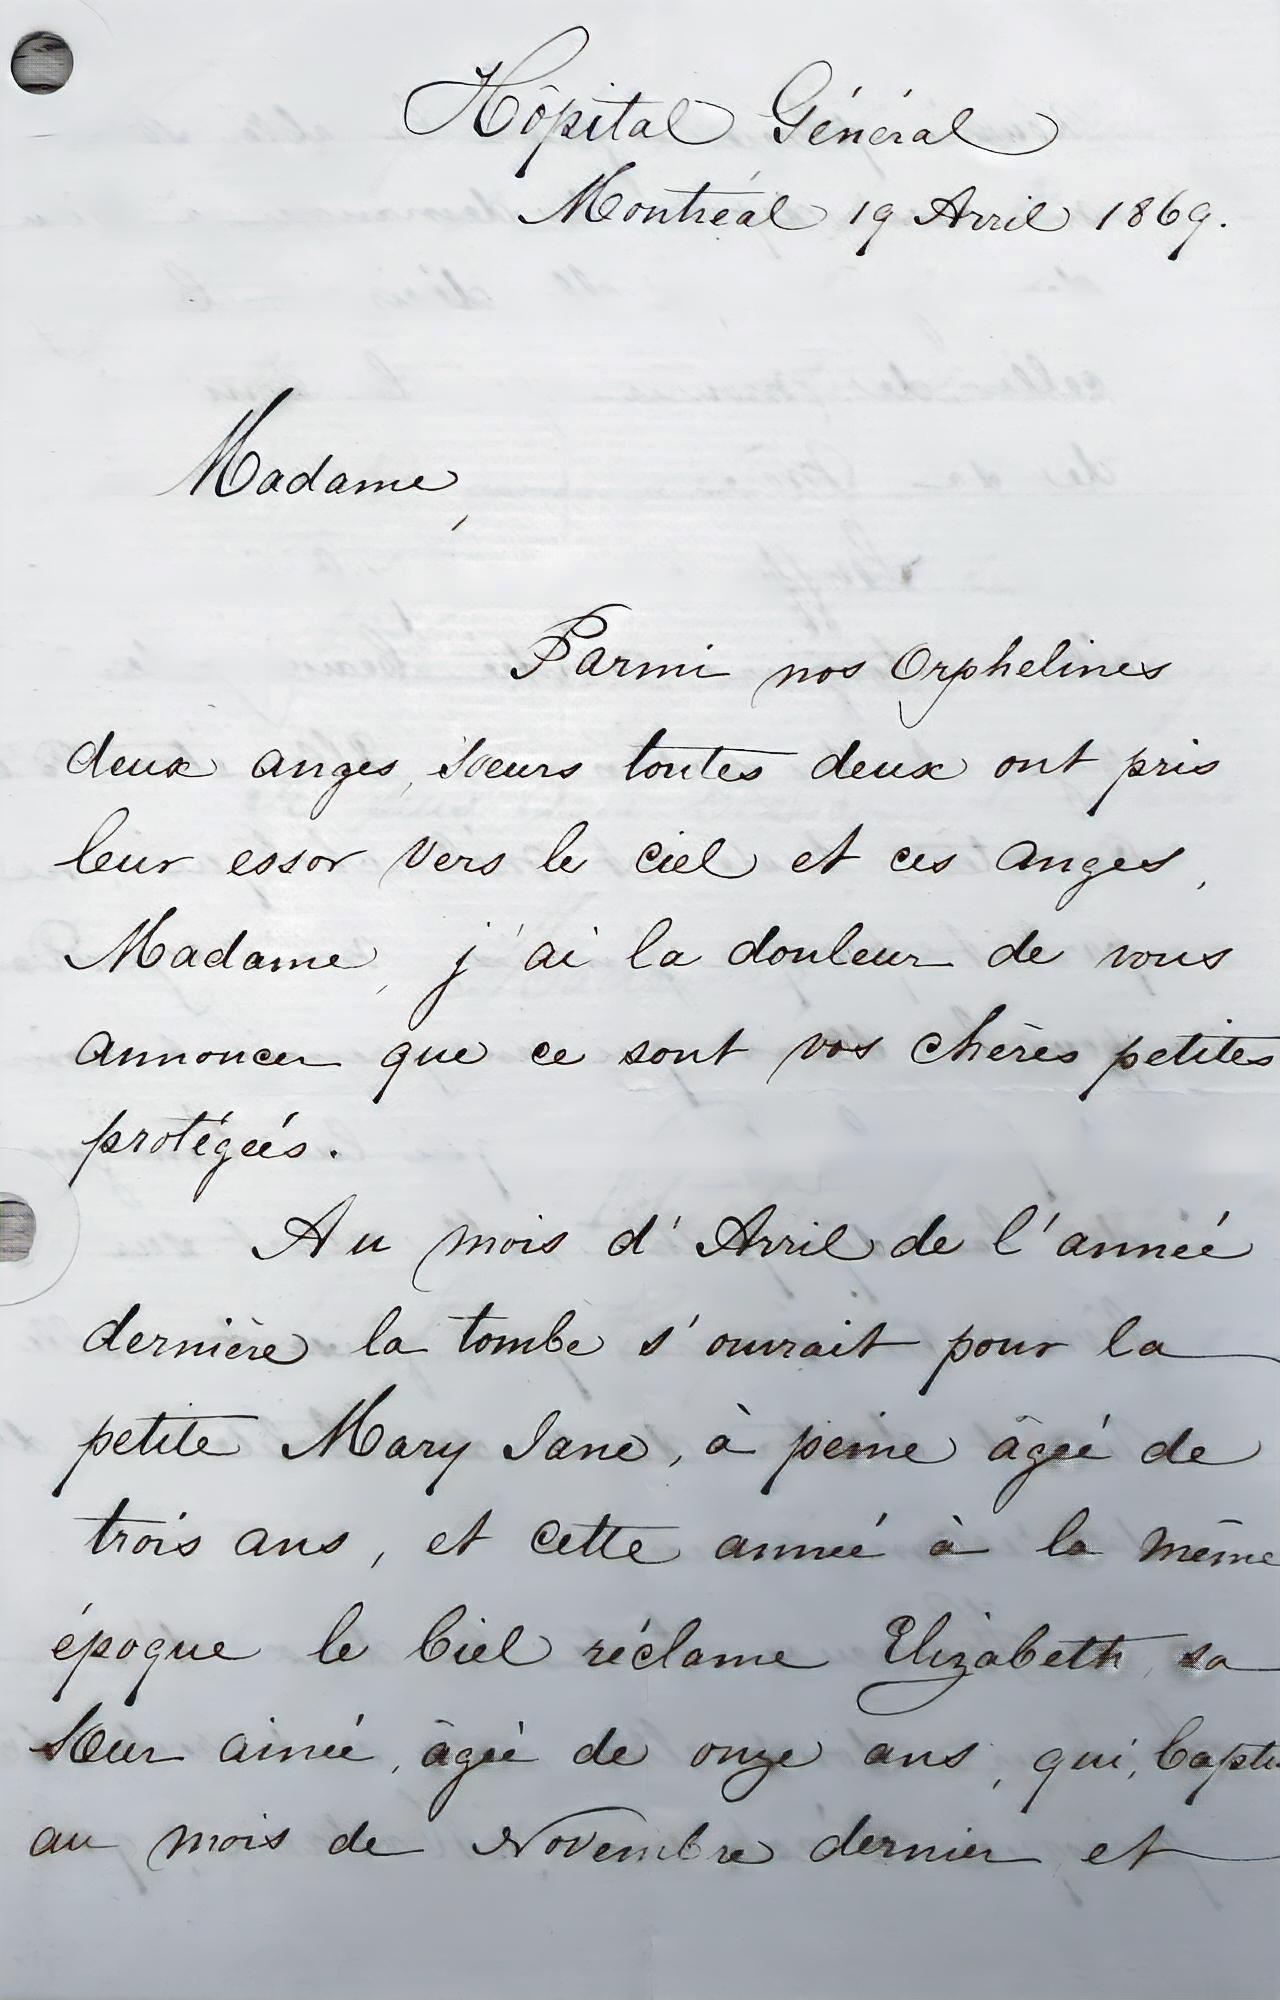 Hôpital Général
Montréal 19 Avril 1869.
Madame,
Parmi nos Orphelines
deux anges, soeurs toutes deux ont pris
leur essor vers le ciel et ces anges,
Madame, j'ai la douleur de vous
annoncer que ce sont vos chères petites
protégées.
Au mois d'Avril de l'année
dernière la tombe s'ouvrait pour la
petite Mary Jane, à peine âgée de
trois ans, et cette année à la même
époque le Ciel réclame Elizabeth, sa
soeur ainée, âgée de onze ans, qui,
au mois de Novembre dernier et